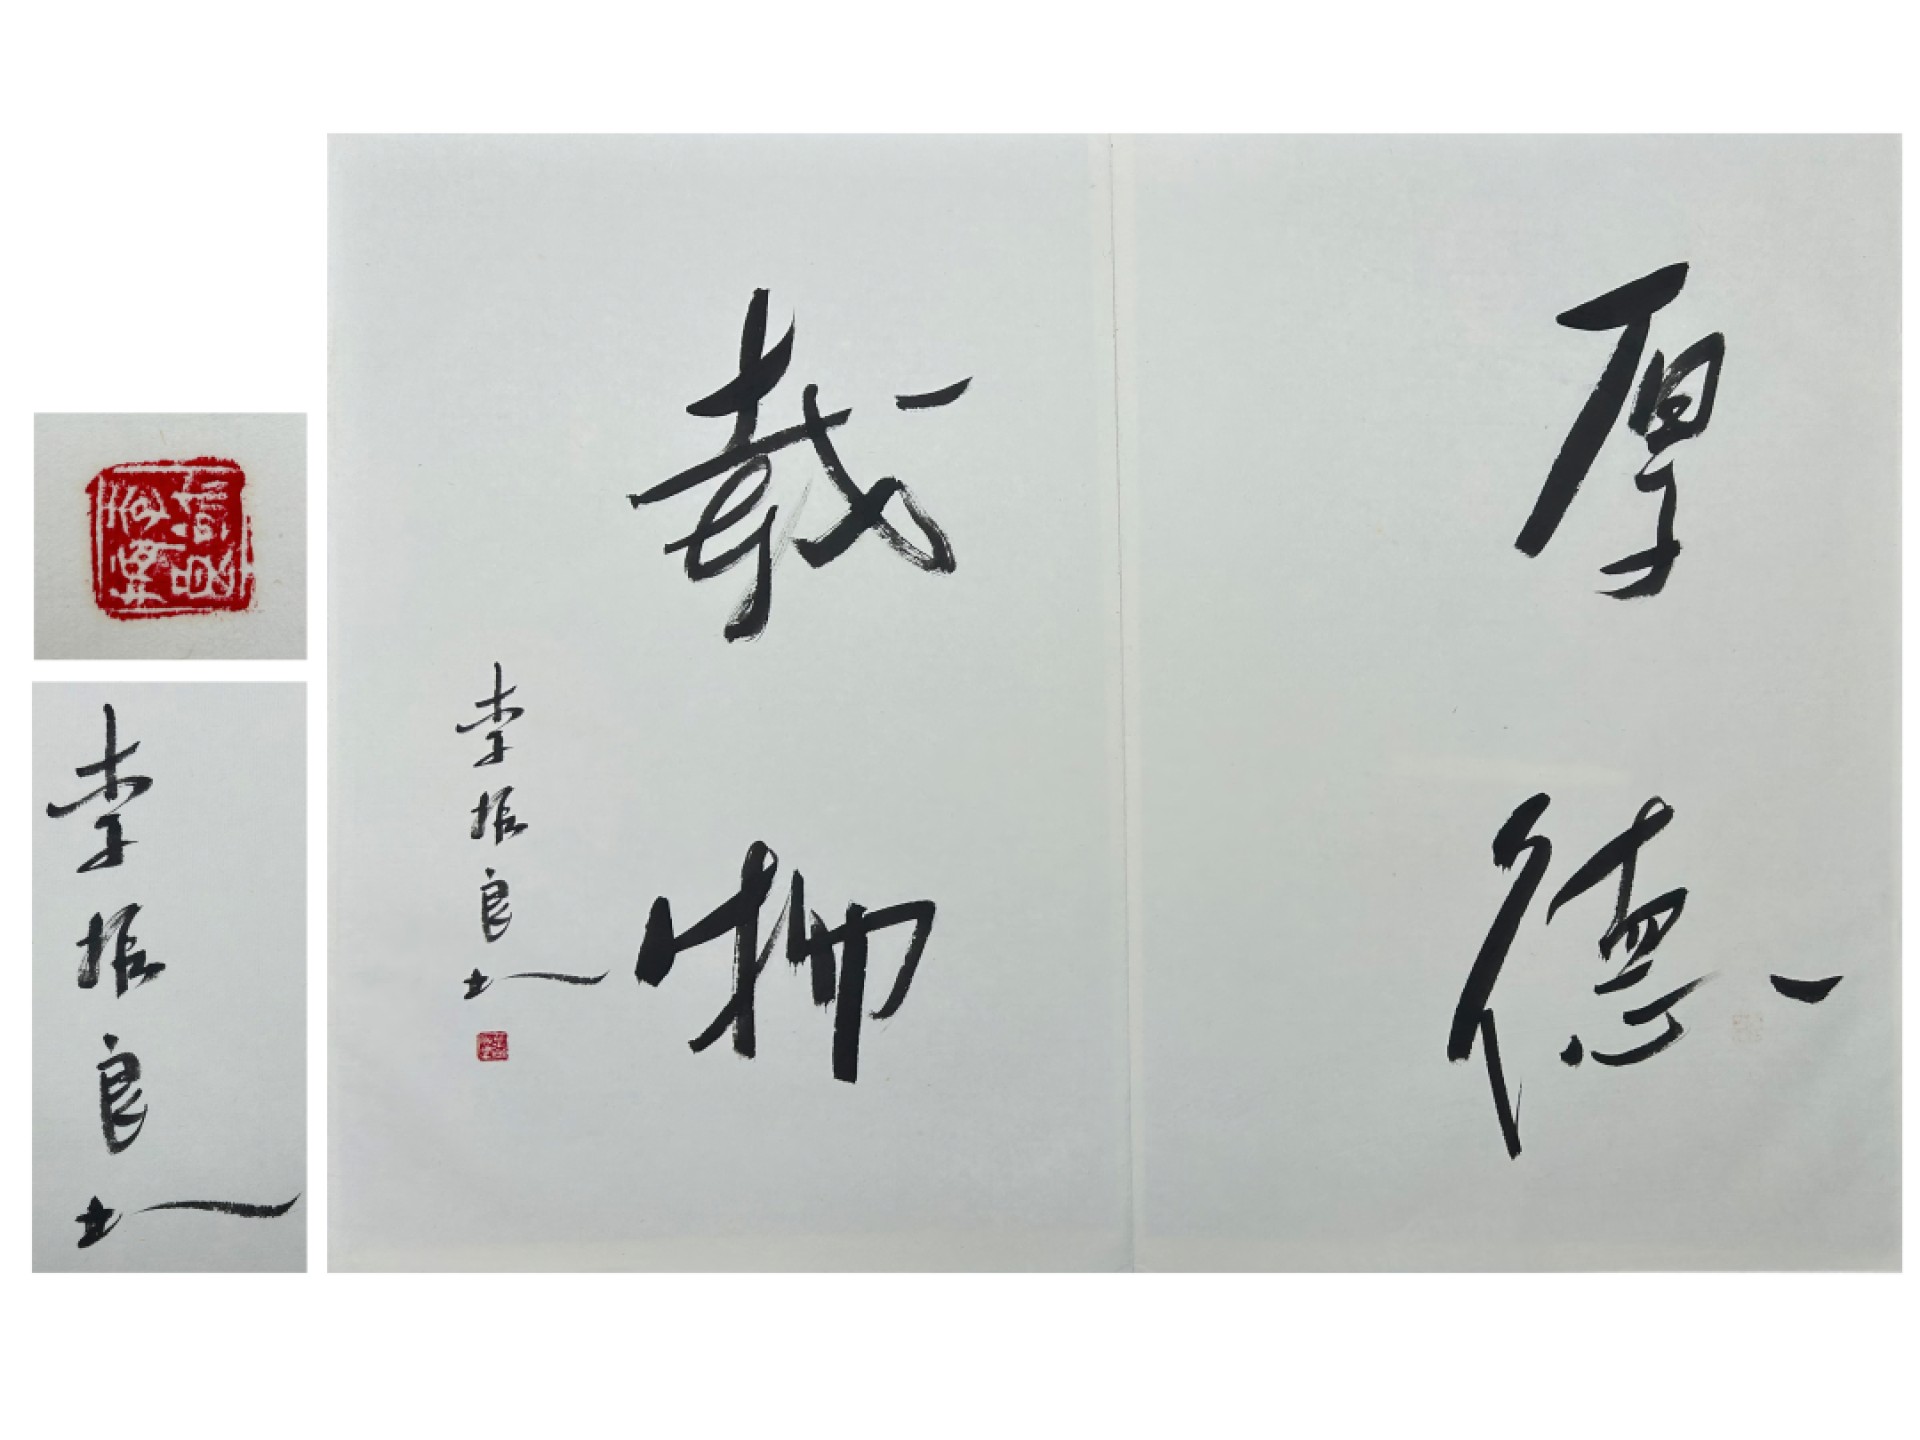 厚德
载物
李振良
李振良